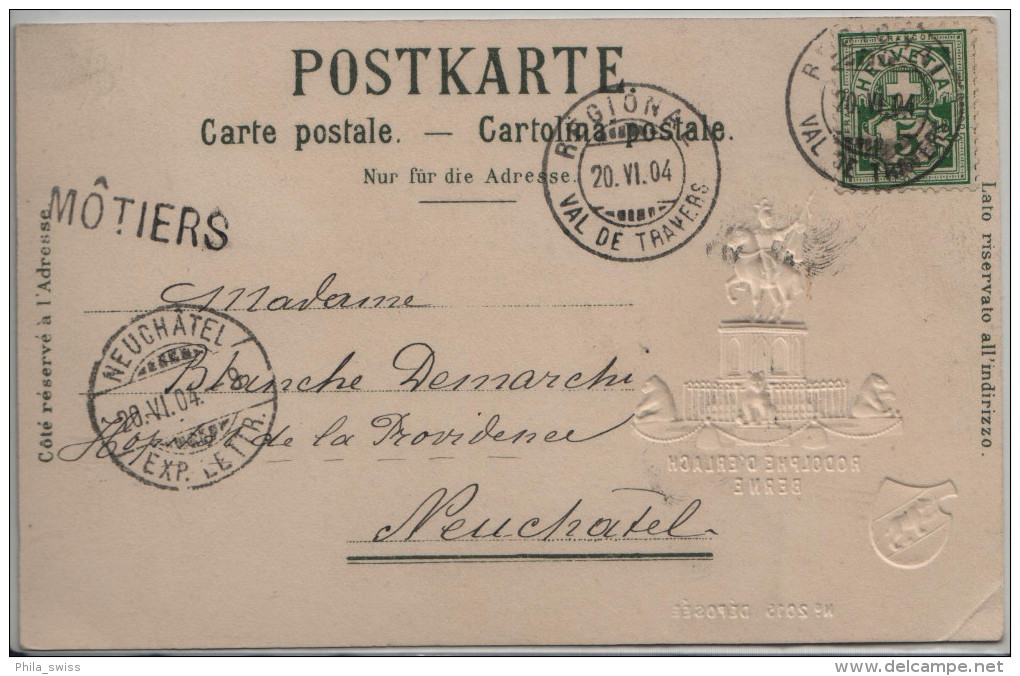 POSTKARTE
Carte postale. — Cartolina postale.
Nur für die Adresse.
HELVETIA
5
RÉGIONAL
20.VI.04
VAL DE TRAVERS
20.VI.04
VAL DE TRAVERS
MÔTIERS
Côté réservé à l'Adresse
Lato riservato all'indirizzo.
Madame
Blanche Demarchi
Hôpital de la Providence
Neuchatel
NEUCHÂTEL
20.VI.04
EXP. LETTR.
RODOLPHE D'ERLACH
BERNE
No 2015 DÉPOSÉE
Phila_swiss
www.delcampe.net